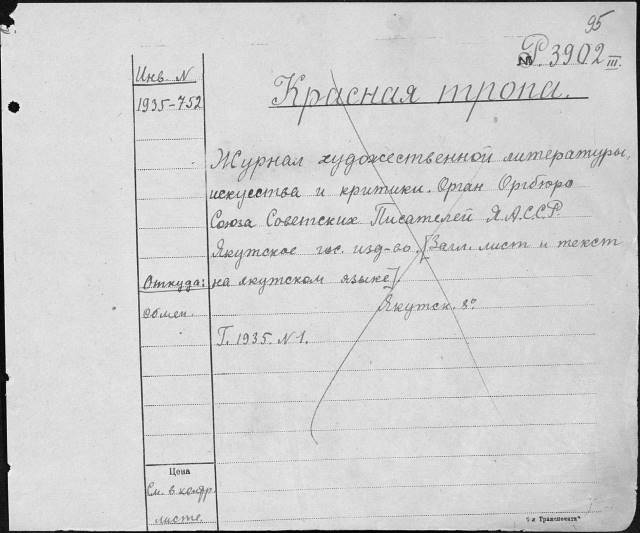 95
№ Р. 3902 III.
Инв. N
1935-752
Красная тропа.
Журнал художественной литературы,
искусства и критики. Орган Оргбюро
Союза Советских Писателей Я.А.С.С.Р.
Якутское гос. изд-во. [Загл. лист и текст
на якутском языке].
Якутск. 8°.
Г. 1935. N 1.
Откуда:
обмен.
Цена
См. в контр.
листе.